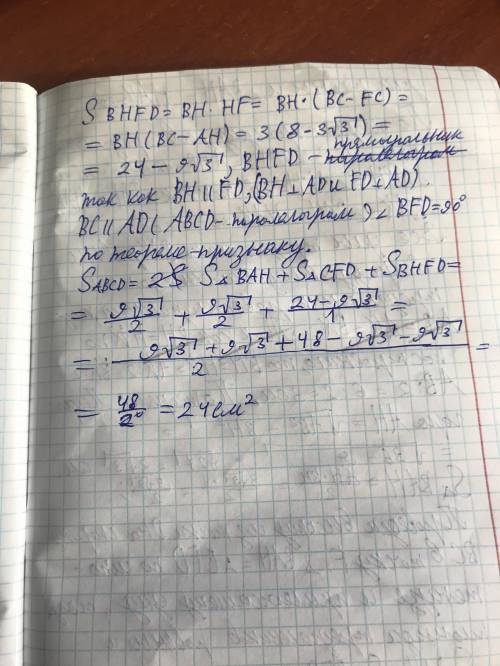 S BHFD = BH · HF = BH · (BC - FC) =
= BH (BC - AH) = 3 (8 - 3√3) =
прямоугольник
= 24 - 9√3, BHFD - паралелограм
так как BH || FD, (BH ⊥ AD и FD ⊥ AD)
BC || AD (ABCD - паролелограм) ∠ BFD = 90°
по теореме-признаку.
S ABCD = 2S S△BAH + S△CFD + S BHFD =
= 9√3/2 + 9√3/2 + 24 - 9√3/1 =
= 9√3 + 9√3 + 48 - 9√3 - 9√3 / 2 =
= 48/2 = 24 см²